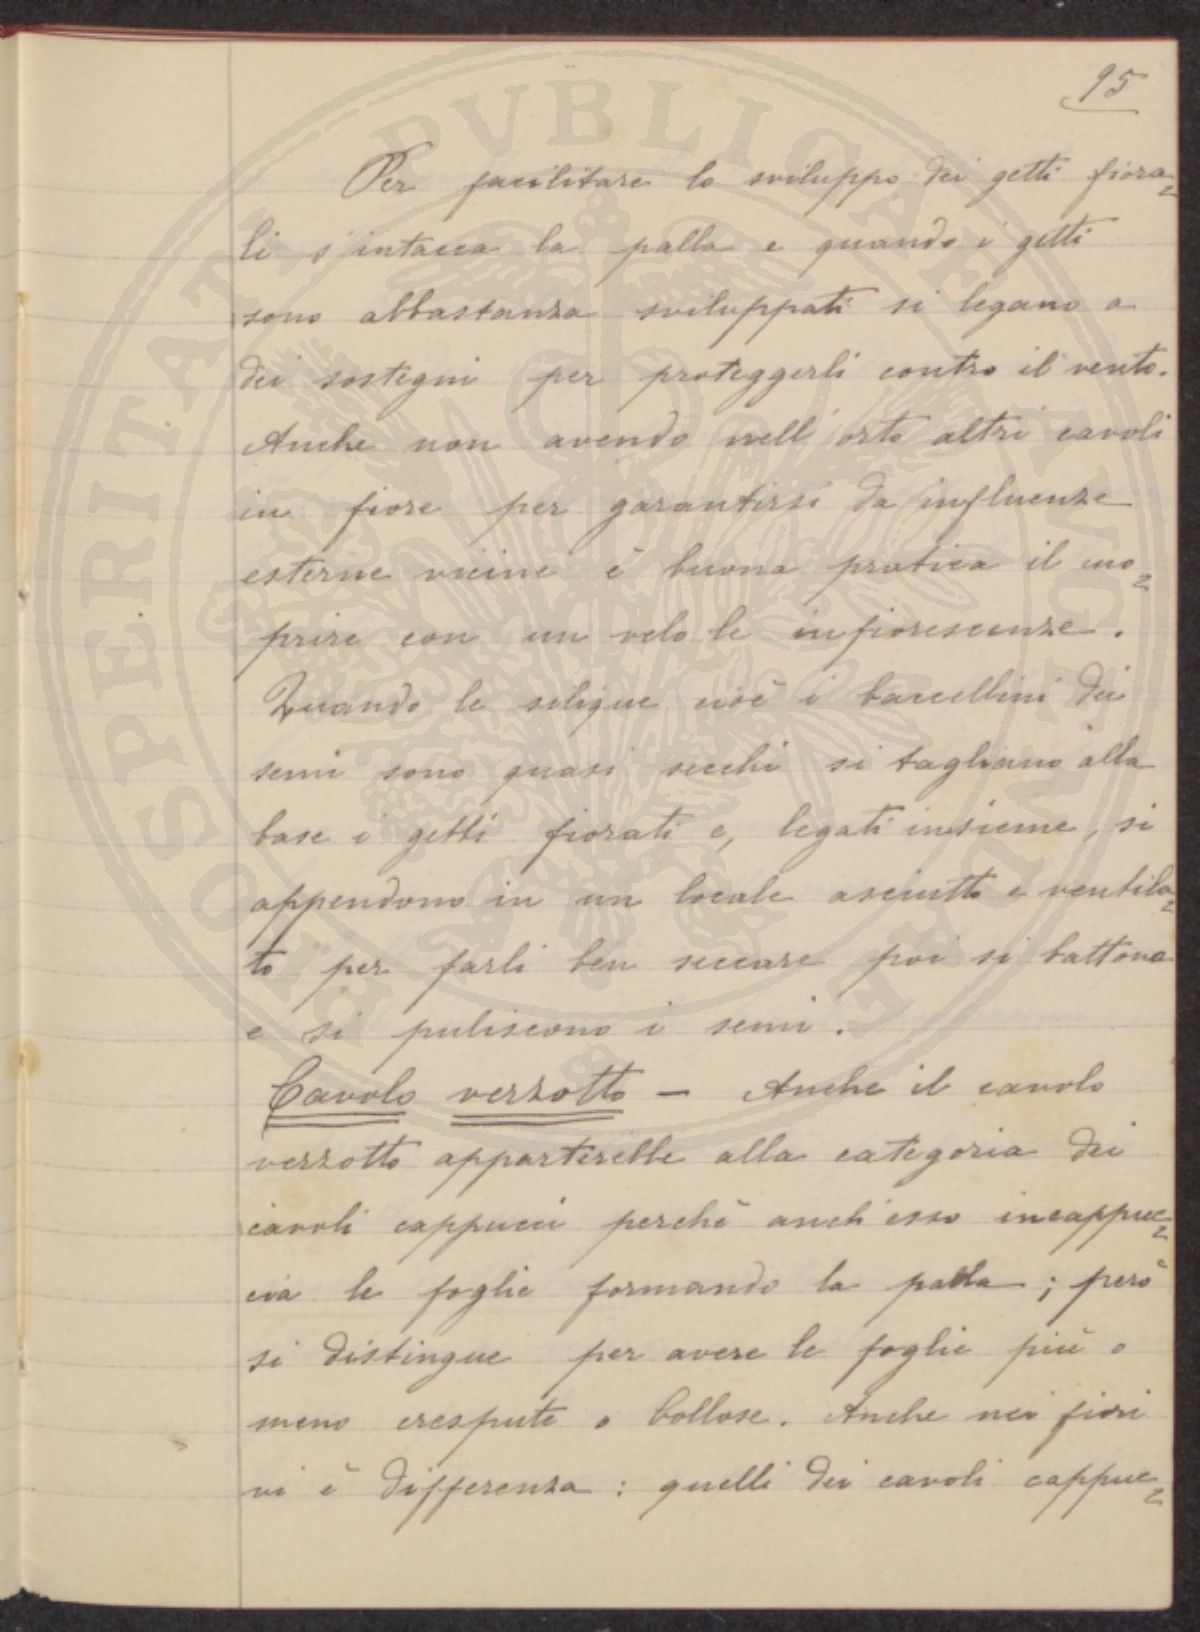 95
Per facilitare lo sviluppo dei getti fiora=
li s'intacca la palla e quando i getti
sono abbastanza sviluppati si legano a
dei sostegni per proteggerli contro il vento.
Anche non avendo nell'orto altri cavoli
in fiore per garantirsi da influenze
esterne vicine è buona pratica il cuo=
prire con un velo le infiorescenze.
Quando le silique cioè i baccellini dei
semi sono quasi secchi si tagliano alla
base i getti fiorati e, legati insieme, si
appendono in un locale asciutto e ventila=
to per farli ben seccare poi si battono
e si puliscono i semi.
Cavolo verzotto – Anche il cavolo
verzotto apparterebbe alla categoria dei
cavoli cappucci perchè anch'esso incappuc=
cia le foglie formando la palla; però
si distingue per avere le foglie più o
meno crespute o bollose. Anche nei fiori
vi è differenza: quelli dei cavoli cappuc=